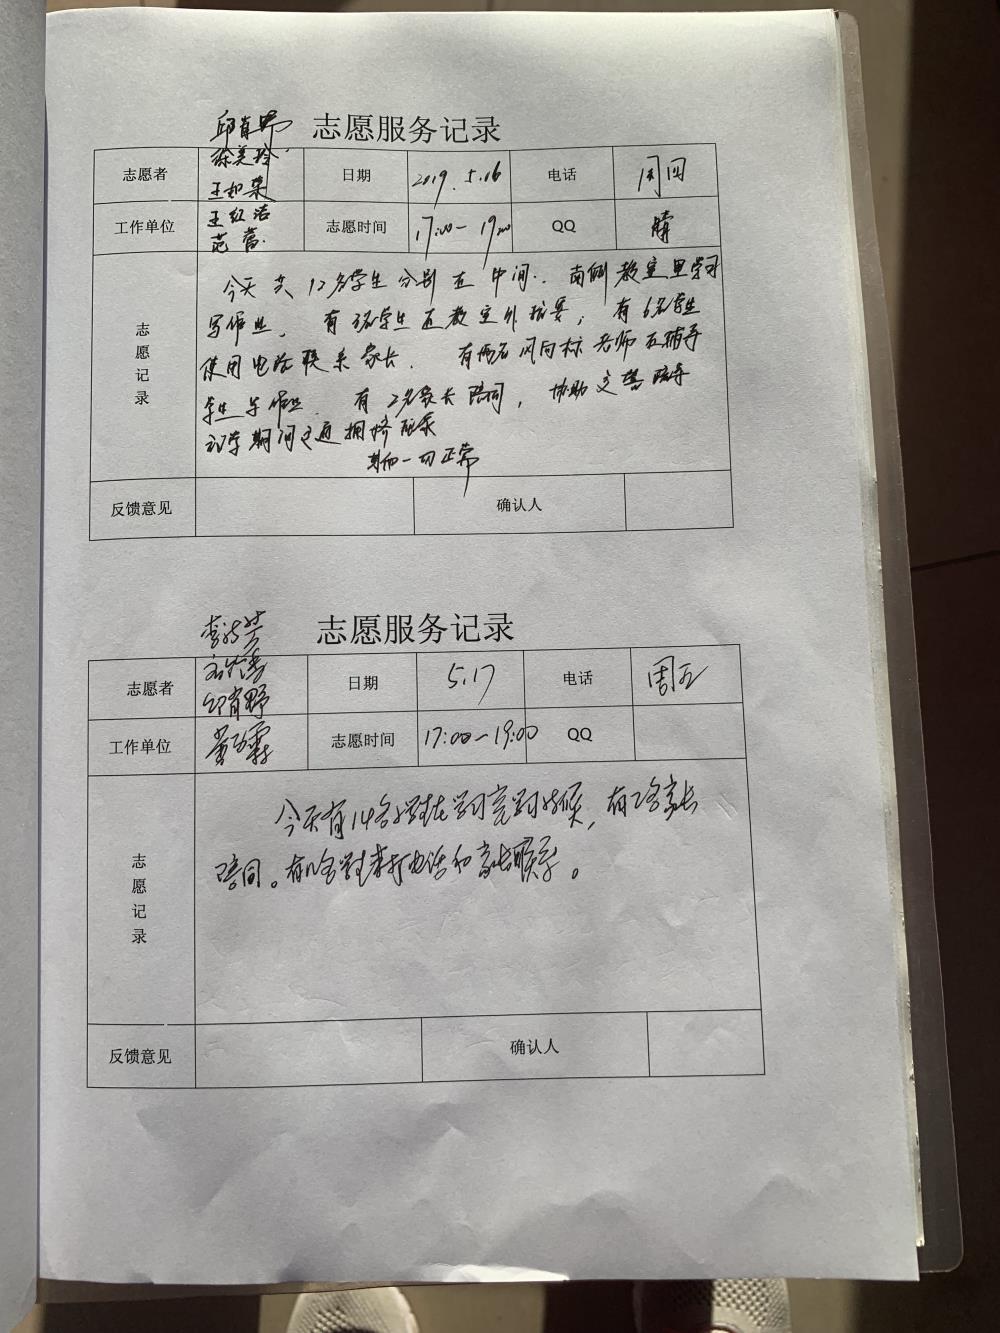 志愿服务记录
邱肖野
徐美玲
志愿者 王和荣 日期 2019.5.16 电话 周四
工作单位 王红洁 志愿时间 17:00-19:00 QQ 晴
范蕾.
今天共12名学生分别在中间.南侧教室里学习
写作业。有3名学生在教室外玩耍；有6名学生
使用电话联系家长. 有两名风向标老师在辅导
学生写作业. 有2名家长陪同，协助交警疏导
放学期间交通拥挤
其他一切正常
志愿记录
反馈意见 确认人
志愿服务记录
志愿者 邱肖野 日期 5.17 电话 周五
工作单位 志愿时间 17:00-19:00 QQ
今天有14名学生在学习室学习,有2名家长
陪同。有学生来打电话和家长联系。
志愿记录
反馈意见 确认人